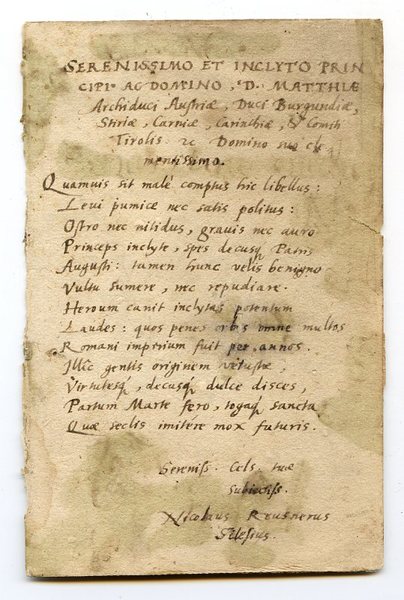 SERENISSIMO ET INCLYTO PRIN
CIPI AC DOMINO, D. MATTHIÆ
Archiduci Austriæ, Duci Burgundiæ,
Stiriæ, Carniæ, Carinthiæ, & Comiti
Tirolis &c Domino suo cle
mentissimo.
Quamuis sit malè comptus hic libellus:
Leui pumice nec satis politus:
Ostro nec nitidus, grauis nec auro
Princeps inclyte, spes decusq́ Patris
Augusti: tamen hunc velis benigno
Vultu sumere, nec repudiare.
Heroum canit inclytas potentum
Laudes: quos penes orbis omne multos
Romani imperium fuit per annos.
Illîc gentis originem vetustæ,
Virtutesq́, decusq́ dulce disces,
Partum Marte fero, togaq́ sancta
Quæ seclis imitere mox futuris.
Sereniss. Cels. tuæ
Subiectiss.
Nicolaus Reusnerus
Silesius.